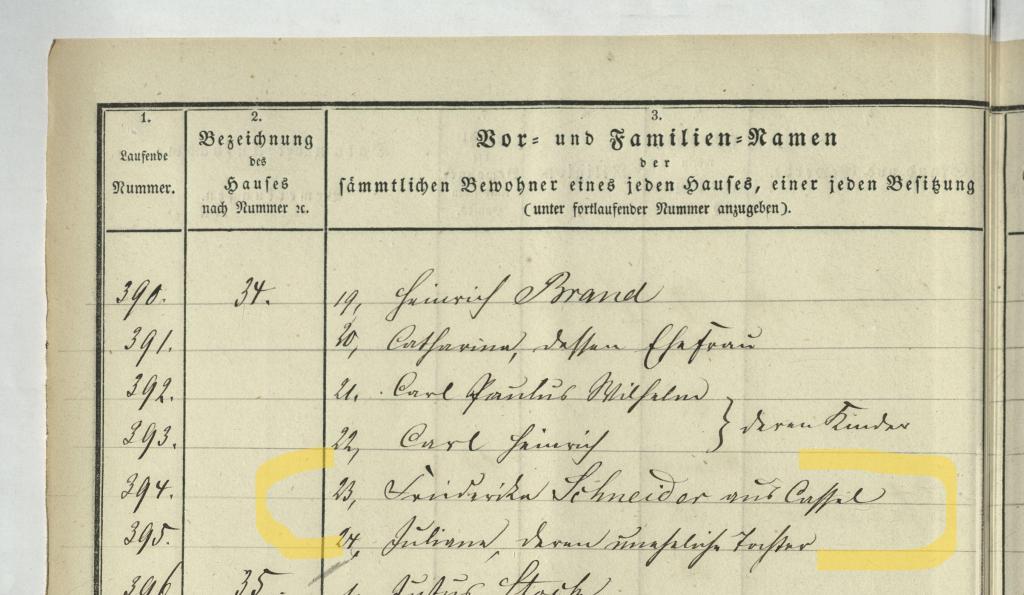 1.
2.
3.
Laufende
Nummer.
Bezeichnung
des
Hauses
nach Nummer ꝛc.
Vor- und Familien-Namen
der
sämmtlichen Bewohner eines jeden Hauses, einer jeden Besitzung
(unter fortlaufender Nummer anzugeben).
390. 34. 19, Heinrich Brand
391. 20, Catharina, dessen Ehefrau
392. 21. Carl Paulus Wilhelm
393. 22, Carl Heinrich } deren Kinder
394. 23, Friederike Schneider aus Cassel
395. 24, Juliane, deren uneheliche Tochter
396 35. 1. Justus Stock